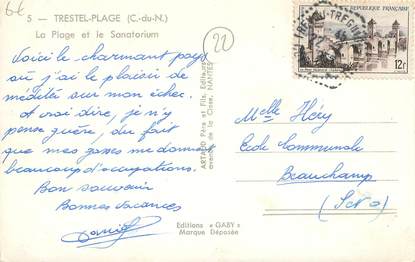 6€
5 - TRESTEL-PLAGE (C.-du-N.)
La Plage et le Sanatorium
22
Voici le charmant pays
où j'ai le plaisir de
médité sur mon échec.
A vrai dire, je n'y
pense guère, du fait
que mes gosses me donnent
beaucoup d'occupations.
Bon souvenir
Bonnes vacances
ARTAUD Père et Fils, Editeurs
avenue de la Close, NANTES
Editions « GABY »
Marque Déposée
REPUBLIQUE FRANÇAISE
12f
Melle Héry
Ecole Communale
Beauchamp
(S&O)